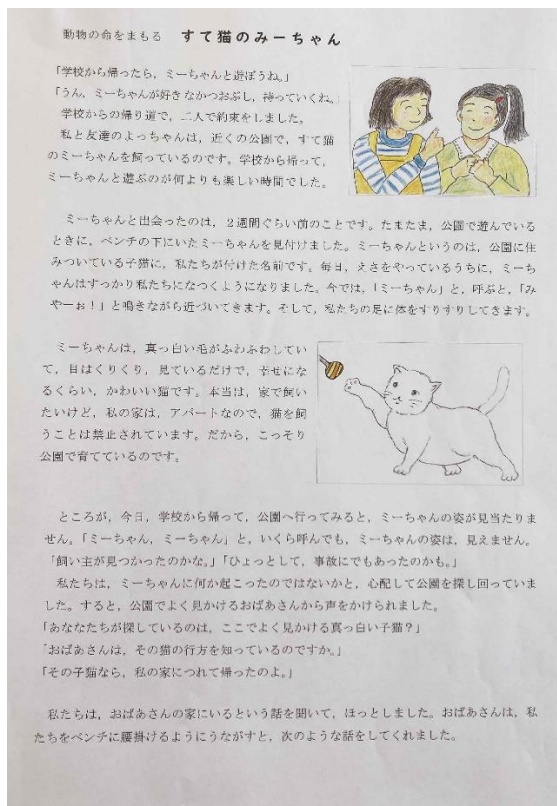 動物の命をまもる　すて猫のみーちゃん
「学校から帰ったら，ミーちゃんと遊ぼうね。」
「うん，ミーちゃんが好きなかつおぶし，持っていくね。
学校からの帰り道で，二人で約束をしました。
私と友達のよっちゃんは，近くの公園で，すて猫
のミーちゃんを飼っているのです。学校から帰って，
ミーちゃんと遊ぶのが何よりも楽しい時間でした。
ミーちゃんと出会ったのは，２週間ぐらい前のことです。たまたま，公園で遊んでいる
ときに，ベンチの下にいたミーちゃんを見付けました。ミーちゃんというのは，公園に住
みついている子猫に，私たちが付けた名前です。毎日，えさをやっているうちに，ミーち
ゃんはすっかり私たちになつくようになりました。今では，「ミーちゃん」と，呼ぶと，「み
やーぉ！」と鳴きながら近づいてきます。そして，私たちの足に体をすりすりしてきます。
ミーちゃんは，真っ白い毛がふわふわしてい
て，目はくりくり，見ているだけで，幸せにな
るくらい，かわいい猫です。本当は，家で飼い
たいけど，私の家は，アパートなので，猫を飼
うことは禁止されています。だから，こっそり
公園で育てているのです。
ところが，今日，学校から帰って，公園へ行ってみると，ミーちゃんの姿が見当たりま
せん。「ミーちゃん，ミーちゃん」と，いくら呼んでも，ミーちゃんの姿は，見えません。
「飼い主が見つかったのかな。」「ひょっとして，事故にでもあったのかも。」
私たちは，ミーちゃんに何か起こったのではないかと，心配して公園を探し回っていま
した。すると，公園でよく見かけるおばあさんから声をかけられました。
「あななたちが探しているのは，ここでよく見かける真っ白い子猫？」
「おばあさんは，その猫の行方を知っているのですか。」
「その子猫なら，私の家につれて帰ったのよ。」
私たちは，おばあさんの家にいるという話を聞いて，ほっとしました。おばあさんは，私
たちをベンチに腰掛けるようにうながすと，次のような話をしてくれました。